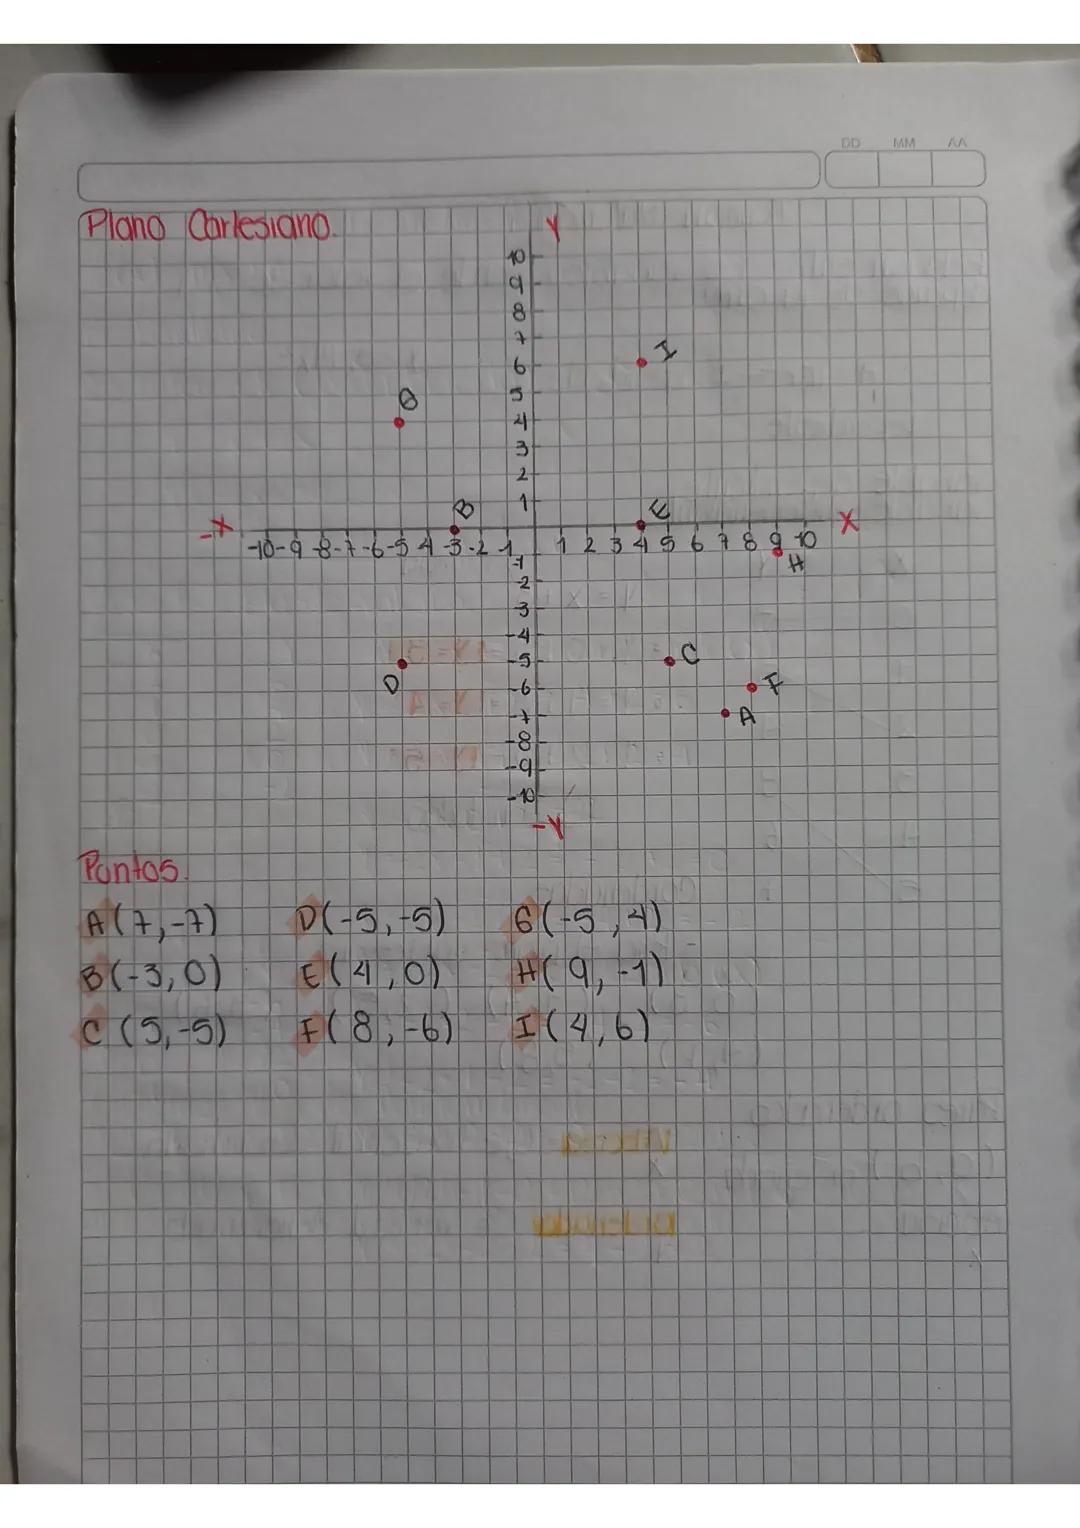 DD MM AA
Plano Cartesiano.
Y
10
9
8
7
6 I
5 G
4
3
2
1 B E
-X -10 -9 -8 -7 -6 -5 4 -3 -2 -1 1 2 3 4 5 6 7 8 9 10 X
-1 H
-2
-3
-4
-5 C
D -6 F
-7 A
-8
-9
-10
-Y
Puntos.
A(7,-7) D(-5,-5) G(-5,4)
B(-3,0) E(4,0) H(9,-1)
C(5,-5) F(8,-6) I(4,6)